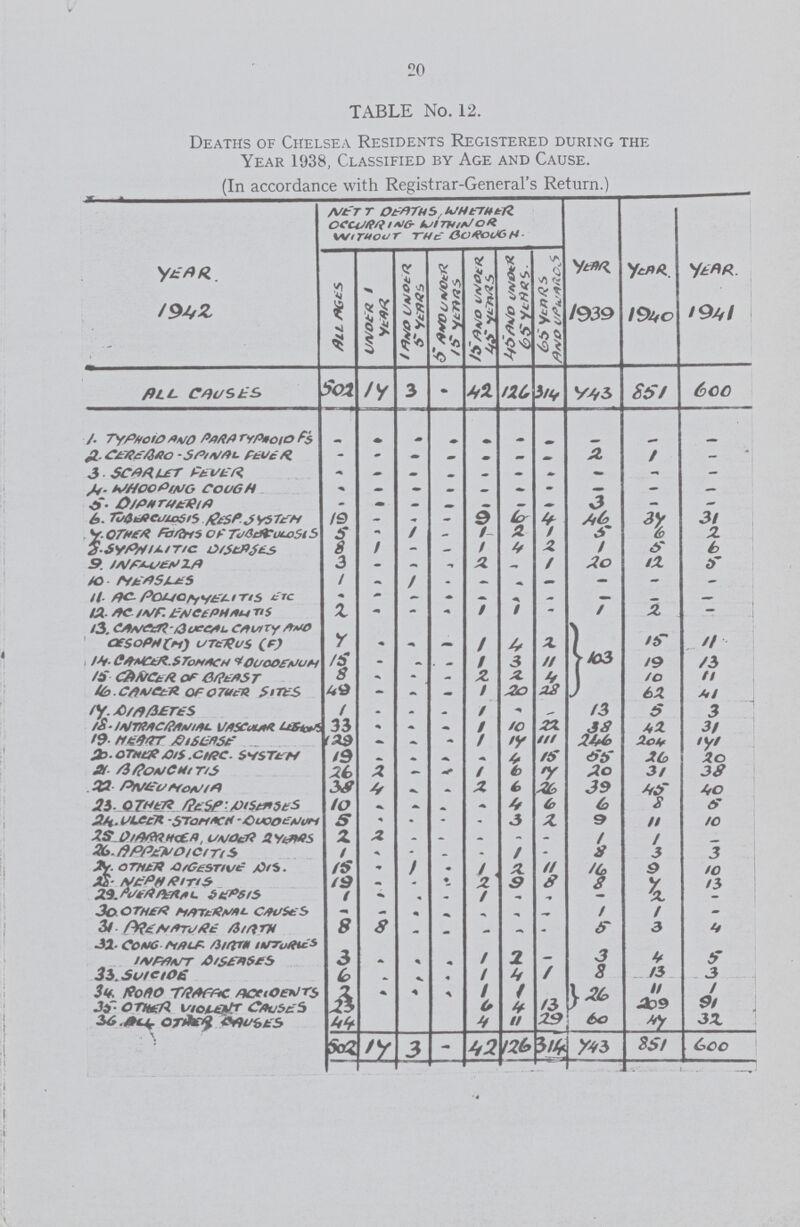 20
TABLE No. 12.
DEATHS OF CHELSEA RESIDENTS REGISTERED DURING THE
YEAR 1938, CLASSIFIED BY AGE AND CAUSE.
(In accordance with Registrar-General's Return.)
NETT DEATHS, WHETHER
OCCURRING WITHIN OR
WITHOUT THE BOROUGH.
YEAR. 1942 ALL AGES UNDER 1 YEAR 1 AND UNDER 5 YEARS 5 AND UNDER 15 YEARS 15 AND UNDER 45 YEARS 45 AND UNDER 65 YEARS. 65 YEARS AND UPWARDS YEAR 1939 YEAR. 1940 YEAR. 1941
ALL CAUSES 502 17 3 - 42 126 314 743 851 600
1. TYPHOID AND PARATYPHOID F'S - - - - - - - - - -
2. CEREBRO-SPINAL FEVER - - - - - - - 2 1 -
3. SCARLET FEVER - - - - - - - - - -
4. WHOOPING COUGH - - - - - - - - - -
5. DIPHTHERIA - - - - - - - 3 - -
6. TUBERCULOSIS RESP. SYSTEM 19 - - - 9 6 4 46 37 31
7. OTHER FORMS OF TUBERCULOSIS 5 - 1 - 1 2 1 5 6 2
8. SYPHILITIC DISEASES 8 1 - - 1 4 2 1 5 6
9. INFLUENZA 3 - - - 2 - 1 20 12 5
10. MEASLES 1 - 1 - - - - - - -
11. AC. POLIOMYELITIS ETC - - - - - - - - - -
12. AC. INF. ENCEPHALITIS 2 - - - 1 1 - 1 2 -
13. CANCER-BUCCAL CAVITY AND
OESOPH (M) UTERUS (F) 7 - - - 1 4 2 15 11
14. CANCER. STOMACH & DUODENUM 15 - - - 1 3 11 } 103 19 13
15. CANCER OF BREAST 8 - - - 2 2 4 10 11
16. CANCER OF OTHER SITES 49 - - - 1 20 28 62 41
17. DIABETES 1 - - - 1 - - 13 5 3
18. INTRACRANIAL VASCULAR LESIONS 33 - - - 1 10 22 38 42 31
19. HEART DISEASE 129 - - - 1 17 111 246 204 171
20. OTHER DIS. CIRC. SYSTEM 19 - - - - 4 15 55 26 20
21. BRONCHITIS 26 2 - - 1 6 17 20 31 38
22. PNEUMONIA 38 4 - - 2 6 26 39 45 40
23. OTHER RESP: DISEASES 10 - - - - 4 6 6 8 5
24. ULCER-STOMACH-DUODENUM 5 - - - - 3 2 9 11 10
25. DIARRHOEA, UNDER 2 YEARS 2 2 - - - - - 1 1 -
26. APPENDICITIS 1 - - - - 1 - 8 3 3
27. OTHER DIGESTIVE DIS. 15 - 1 - 1 2 11 16 9 10
28. NEPHRITIS 19 - - - 2 9 8 8 7 13
29. PUERPERAL SEPSIS 1 - - - 1 - - - 2 -
30. OTHER MATERNAL CAUSES - - - - - - - 1 1 -
31. PREMATURE BIRTH 8 8 - - - - - 5 3 4
32. CONG. MALF. BIRTH INJURIES
INFANT DISEASES 3 - - - 1 2 - 3 4 5
33. SUICIDE 6 - - - 1 4 1 8 13 3
34. ROAD TRAFFIC ACCIDENTS 2 - - - 1 1 } 26 11 1
35. OTHER VIOLENT CAUSES 23 6 4 13 209 91
36. ALL OTHER CAUSES 44 4 11 29 60 47 32
502 17 3 - 42 126 314 743 851 600